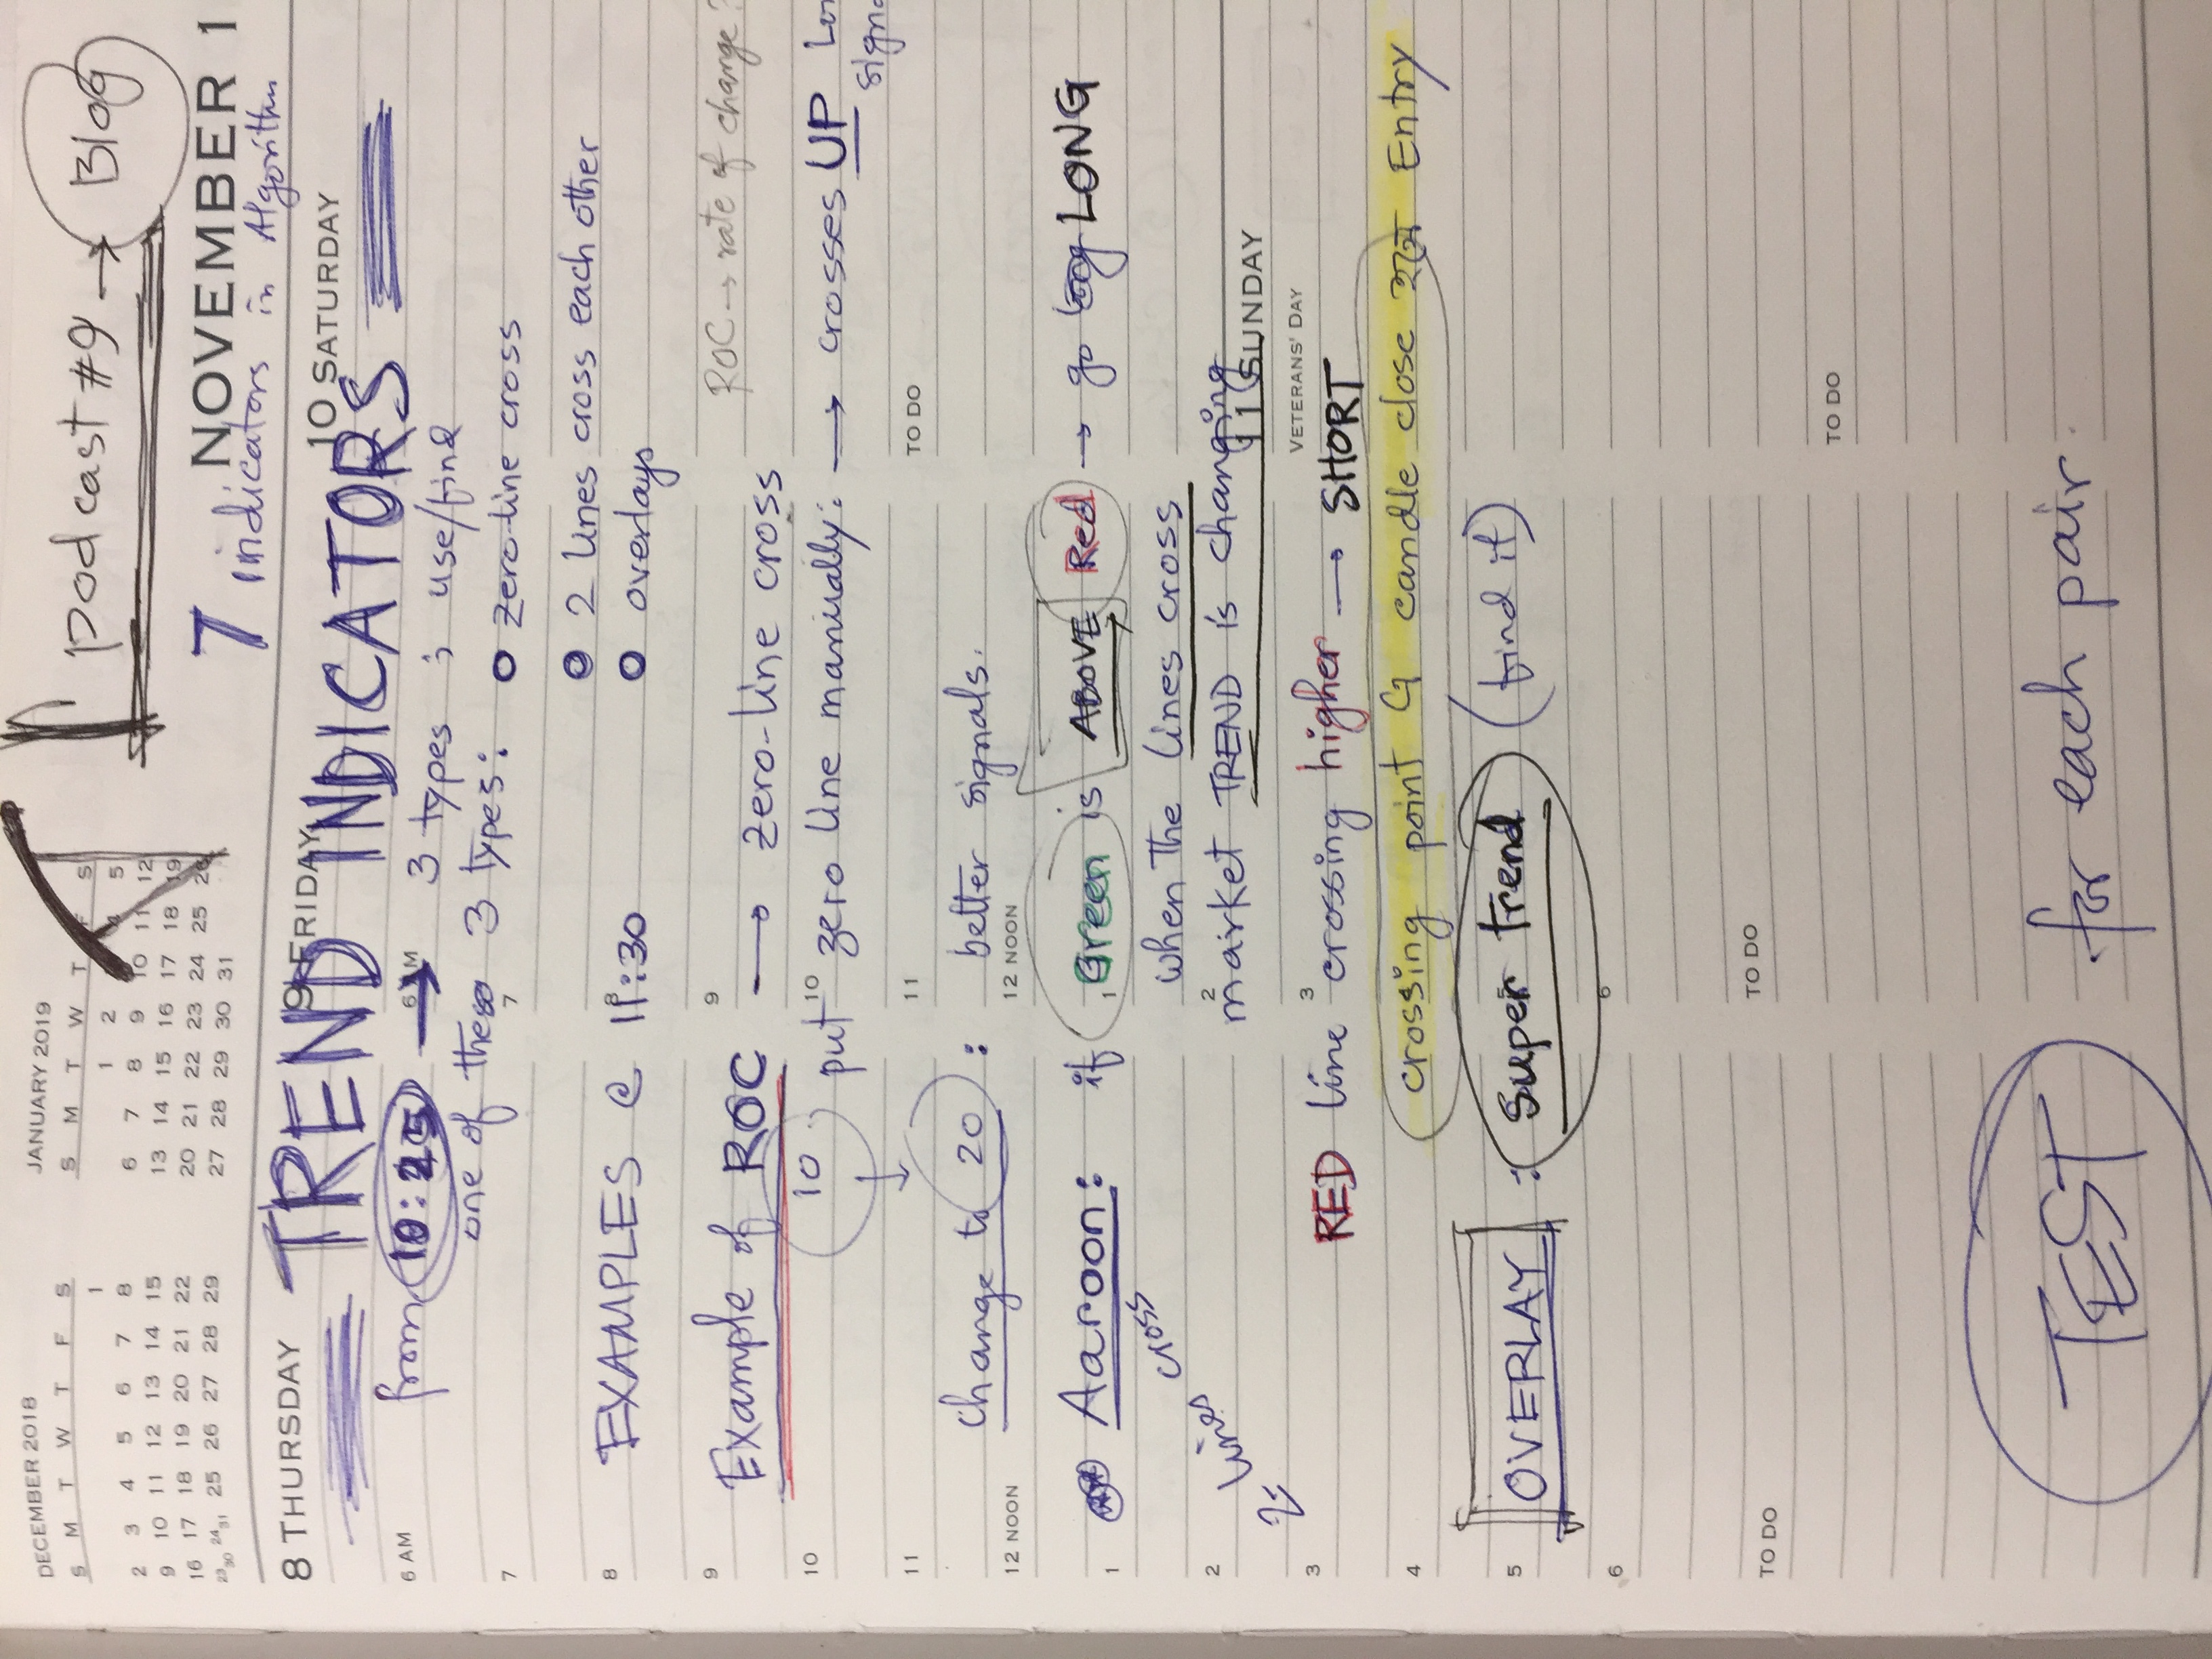 DECEMBER 2018
S M T W T F S
1
2 3 4 5 6 7 8
9 10 11 12 13 14 15
16 17 18 19 20 21 22
23 30 24 31 25 26 27 28 29
JANUARY 2019
S M T W T F S
1 2 4 5
6 7 8 9 10 11 12
13 14 15 16 17 18 19
20 21 22 23 24 25 26
27 28 29 30 31
podcast #9 → Blog
NOVEMBER 1
7 indicators in Algorithm
8 THURSDAY
9 FRIDAY
10 SATURDAY
TREND INDICATORS
6 AM
6 AM
from 10:25 → 3 types ; use/find
one of these 3 types:
7
7
zero-line cross
2 lines cross each other
8
8
EXAMPLES @ 11:30
overlays
9
9
ROC → rate of change?
Example of ROC → zero-line cross
10
10
10
put zero line manually: → crosses UP
11
11
TO DO
change to 20 : better signals.
12 NOON
12 NOON
Aaroon: if Green is ABOVE Red → go LONG
1
1
2 lines cross
when the lines cross
2
2
market TREND is changing
11 SUNDAY
VETERANS' DAY
3
3
RED line crossing higher → SHORT
4
4
crossing point এ candle close হলে Entry
5
5
OVERLAY : Super trend (find it)
6
6
TO DO
TO DO
TO DO
TEST for each pair.